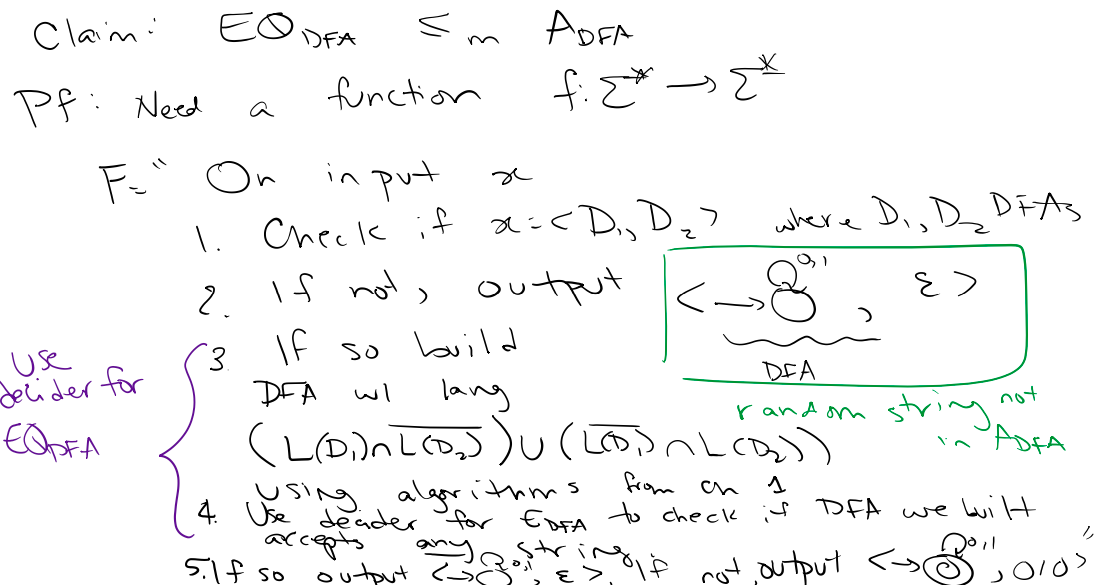 Claim: EQ_DFA ≤_m A_DFA
Pf: Need a function f: Σ* → Σ*
F = " On input x
1. Check if x = <D₁, D₂> where D₁, D₂ DFAs
2. If not, output < → 0,1 , ε >
DFA
random string not
in A_DFA
3. If so build
DFA w/ lang
(L(D₁) ∩ \overline{L(D₂)}) ∪ (\overline{L(D₁)} ∩ L(D₂))
using algorithms from ch 1
Use
decider for
EQ_DFA
4. Use decider for E_DFA to check if DFA we built
accepts any string
5. If so output < → 0,1 , ε >. If not, output < → 0,1 , 010 > "